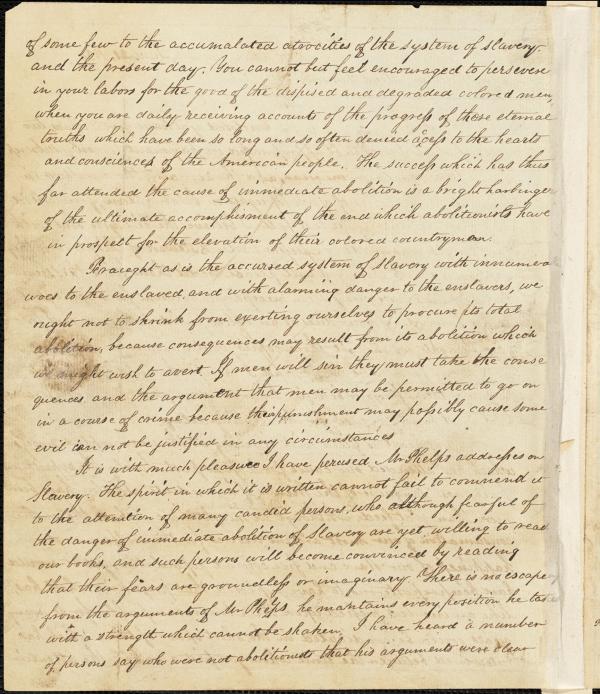 of some few to the accumalated atrocities of the system of slavery
and the present day. You cannot but feel encouraged to persevere
in your labors for the good of the dispised and degraded colored men,
when you are daily receiving accounts of the progress of those eternal
truths which have been so long and so often denied acess to the hearts
and consciences of the American people. The success which has thus
far attended the cause of immediate abolition is a bright harbinger
of the ultimate accomplisment of the end which abolitionists have
in prospect for the elevation of their colored countrymen.
Fraught as is the accursed system of slavery with
woes to the enslaved, and with alarming danger to the enslavers, we
ought not to shrink from exerting ourselves to procure its total
abolition, because consequences may result from its abolition which
we might wish to avert. If men will sin they must take the conse
quences, and the argument that men may be permitted to go on
in a course of crime because their punishment may possibly cause some
evil can not be justified in any circumstances
It is with much pleasure I have perused Mr Phelps addresses on
Slavery. The spirit in which it is written cannot fail to commend it
to the attention of many candid persons, who although fearful of
the danger of immediate abolition of Slavery are yet willing to read
our books, and such persons will become convinced by reading
that their fears are groundless or imaginary. There is no escape
from the arguments of Mr Phelps, he maintains every position he
with a strength which cannot be shaken. I have heard a number
of persons say who were not abolitionists that his arguments were clear